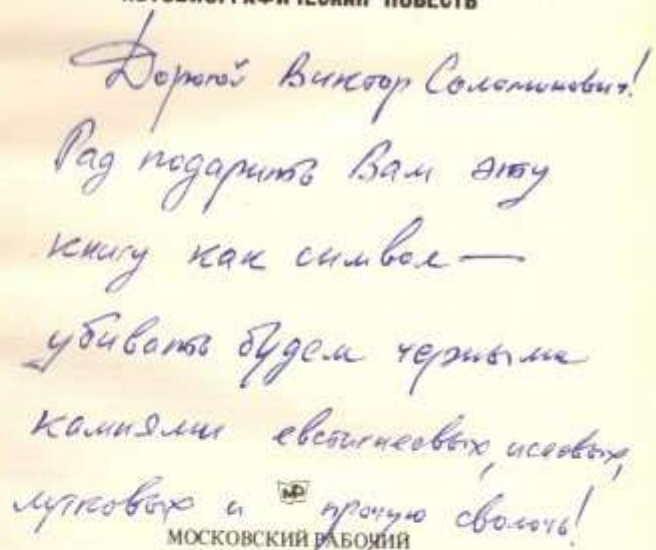 АВТОБИОГРАФИЧЕСКАЯ ПОВЕСТЬ
Дорогой Виктор Соломонович!
Рад подарить Вам эту
книгу как символ —
убивать будем черными
камнями евстигнеевых, исаевых,
лутковых и прочую сволочь!
МР
МОСКОВСКИЙ РАБОЧИЙ